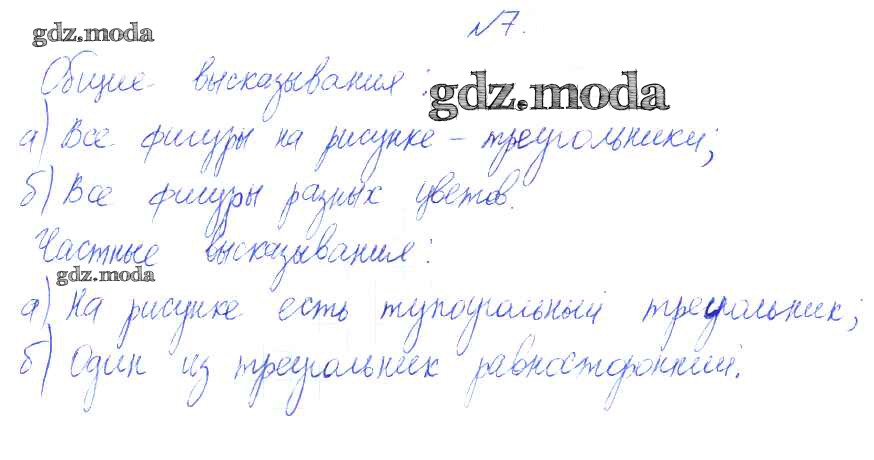 gdz.moda
№7.
Общие высказывания:
gdz.moda
а) Все фигуры на рисунке - треугольники;
б) Все фигуры разных цветов.
Частные высказывания:
gdz.moda
а) На рисунке есть тупоугольный треугольник;
б) Один из треугольник равносторонний.